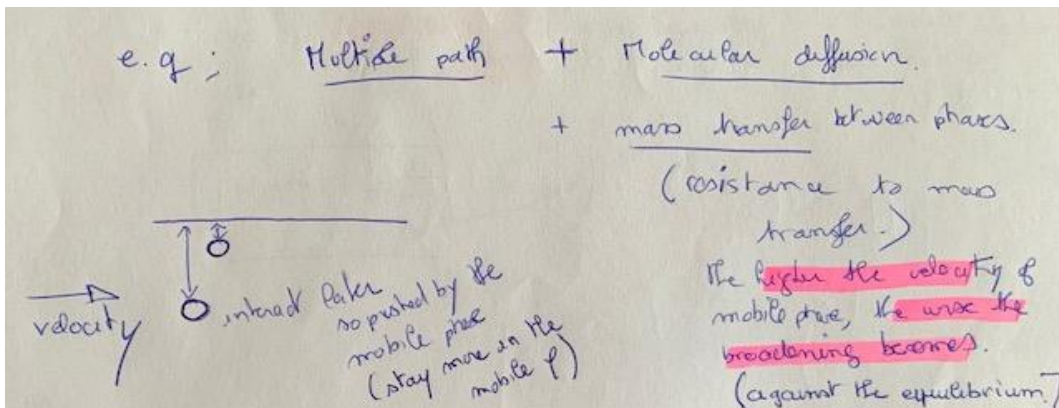 e.g ; Multiple path + Molecular diffusion.
+ mass transfer between phases.
(resistance to mass
transfer.)
The higher the velocity of
mobile phase, the worse the
broadening becomes.
(against the equilibrium.)
velocity
interact later
so pushed by the
mobile phase
(stay more in the
mobile φ)